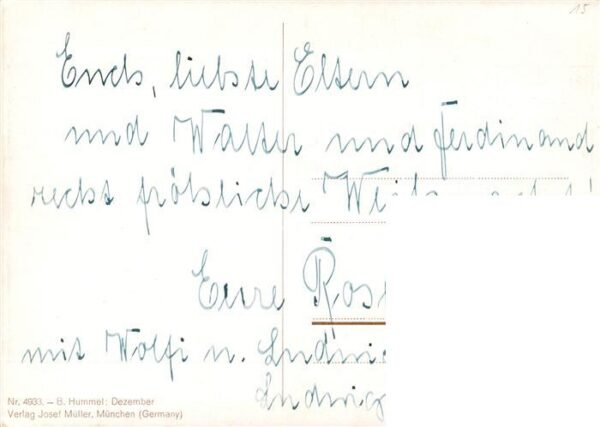 15
Euch, liebste Eltern
und Walter und Ferdinand
recht fröhliche
Eure
mit Wolfi u.
Ludwig
Nr. 4933. — B. Hummel: Dezember
Verlag Josef Müller, München (Germany)